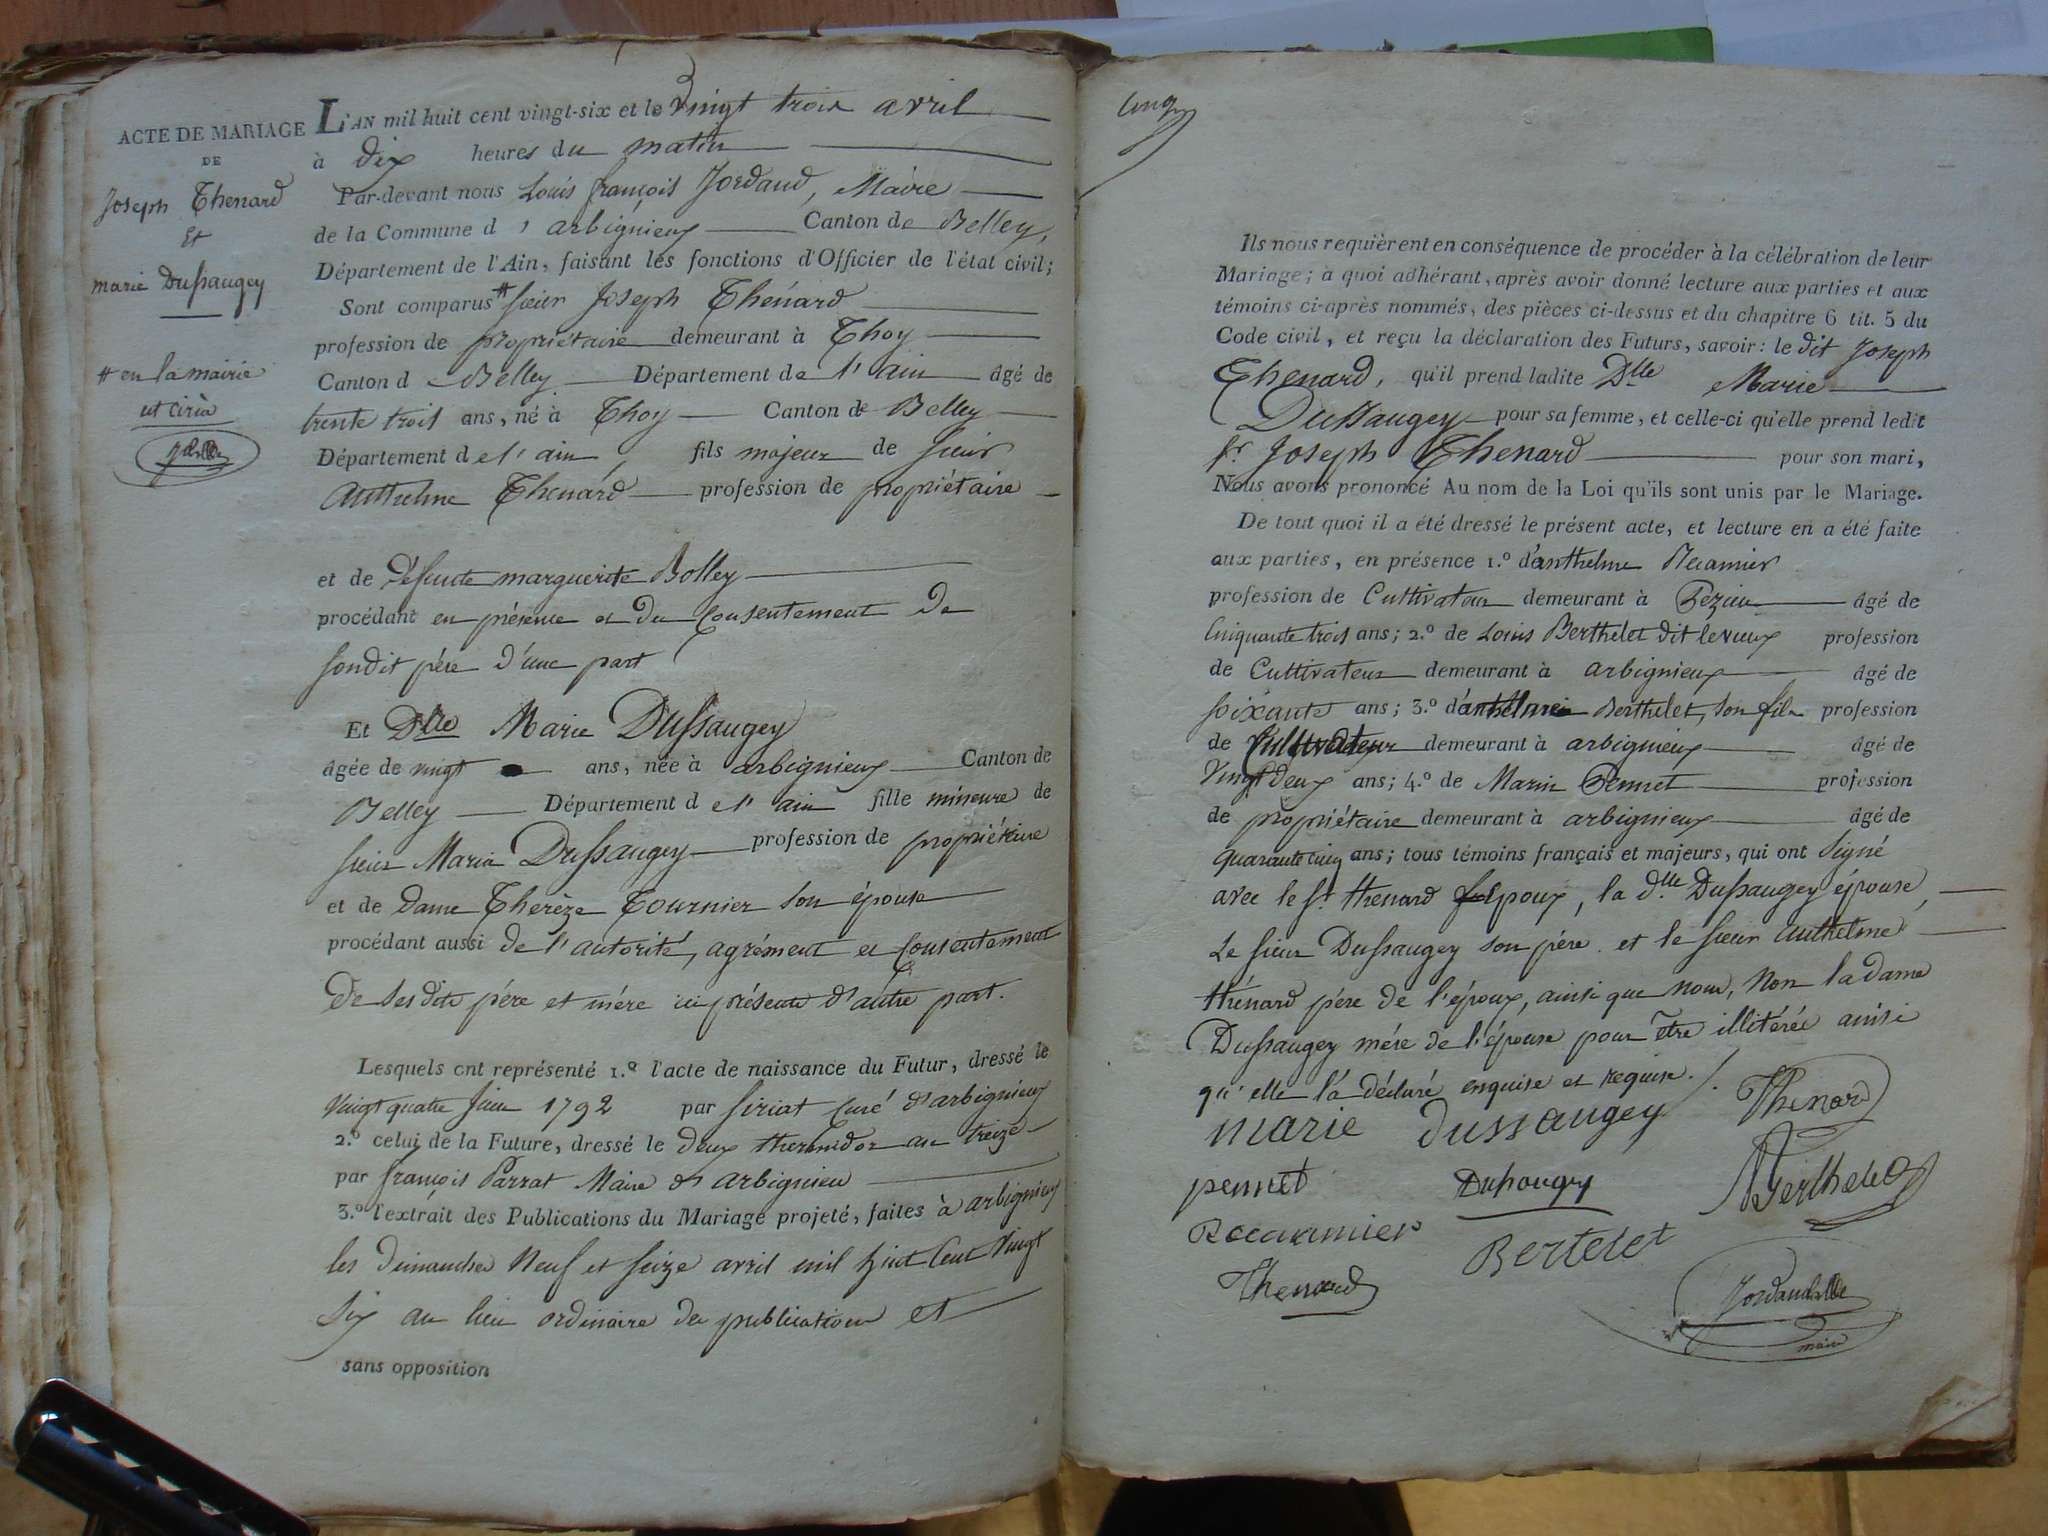 ACTE DE MARIAGE
DE
Joseph Thenard
et
marie Dussaugey
# en la mairie
L'AN mil huit cent vingt-six et le vingt trois avril
à dix heures du matin
Par-devant nous Louis françois Jordand, Maire
de la Commune d'arbignieux Canton de Belley,
Département de l'Ain, faisant les fonctions d'Officier de l'état civil;
Sont comparus # sieur Joseph Thénard
profession de propriétaire demeurant à Thoy
Canton de Belley Département de l'ain âgé de
trente trois ans, né à Thoy Canton de Belley
Département de l'ain, fils majeur de sieur
Anthelme Thenard profession de propriétaire
et de défunte marguerite Bolley
procédant en présence et du Consentement de
sondit père d'une part
Et Dlle Marie Dussaugey
âgée de vingt ans, née à arbignieux Canton de
Belley Département de l'ain fille mineure de
sieur Marin Dussaugey profession de propriétaire
et de dame Therèze Tournier son épouse
procédant aussi de l'autorité, agrément et Consentement
de ses dits père et mère ici présents d'autre part.
Lesquels ont représenté 1.º l'acte de naissance du Futur, dressé le
vingt quatre Juin 1792 par siriat Curé d'arbignieux
2.º celui de la Future, dressé le deux thermidor an treize
par françois Parrat Maire d'arbignieu
3.º l'extrait des Publications du Mariage projeté, faites à arbignieux
les dimanches Neuf et seize avril mil huit Cent vingt
six au lieu ordinaire des publications et
sans opposition
Ils nous requièrent en conséquence de procéder à la célébration de leur
Mariage; à quoi adhérant, après avoir donné lecture aux parties et aux
témoins ci-après nommés, des pièces ci-dessus et du chapitre 6 tit. 5 du
Code civil, et reçu la déclaration des Futurs, savoir: le dit Joseph
Thenard, qu'il prend ladite Dlle Marie
Dussaugey pour sa femme, et celle-ci qu'elle prend ledit
sr Joseph Thenard pour son mari,
Nous avons prononcé Au nom de la Loi qu'ils sont unis par le Mariage.
De tout quoi il a été dressé le présent acte, et lecture en a été faite
aux parties, en présence 1.º d'anthelme Récamier
profession de Cultivateur demeurant à Pézieu âgé de
Cinquante trois ans; 2.º de Louis Berthelet dit levieux profession
de Cultivateur demeurant à arbignieux âgé de
soixante ans; 3.º d'anthelme Berthelet, son fils profession
de Cultivateur demeurant à arbignieux âgé de
vingt deux ans; 4.º de Marin Pennet profession
de propriétaire demeurant à arbignieux âgé de
quarante cinq ans; tous témoins français et majeurs, qui ont signé
avec le sr thenard époux, la dlle Dussaugey épouse,
Le sieur Dussaugey son père et le sieur anthelme
thénard père de l'époux, ainsi que nous, Non la dame
Dussaugey mère de l'épouse pour être illitérée ainsi
qu'elle l'a déclaré enquise et requise.
marie Dussaugey Thenard
pennet Dussaugey Berthelet
Reccarmier Bertelet
Thenard
Jordand
maire